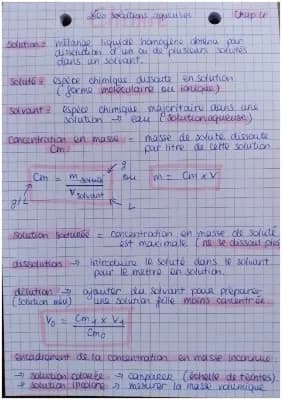 Les solutions aqueuses Chap 4
solution = mélange liquide homogène obtenu par
dissolution d'un ou de plusieurs solutés
dans un solvant.
soluté = espèce chimique dissoute en solution
( forme moléculaire ou ionique )
solvant = espèce chimique majoritaire dans une
solution → eau ( solution aqueuse )
concentration en masse = masse de soluté dissoute
Cm par litre de cette solution
g
Cm = m soluté / V solvant ou m = Cm × V
g/L L
solution saturée = concentration en masse de soluté
est maximale. ( ne se dissout plus
dissolution → introduire le soluté dans le solvant
pour le mettre en solution.
dilution → ajouter du solvant pour préparer
(solution mère) une solution fille moins concentrée
V0 = Cm1 × V1 / Cm0
encadrement de la concentration en masse inconnue
→ solution colorée → comparer ( échelle de teintes )
→ solution incolore → mesurer la masse volumique